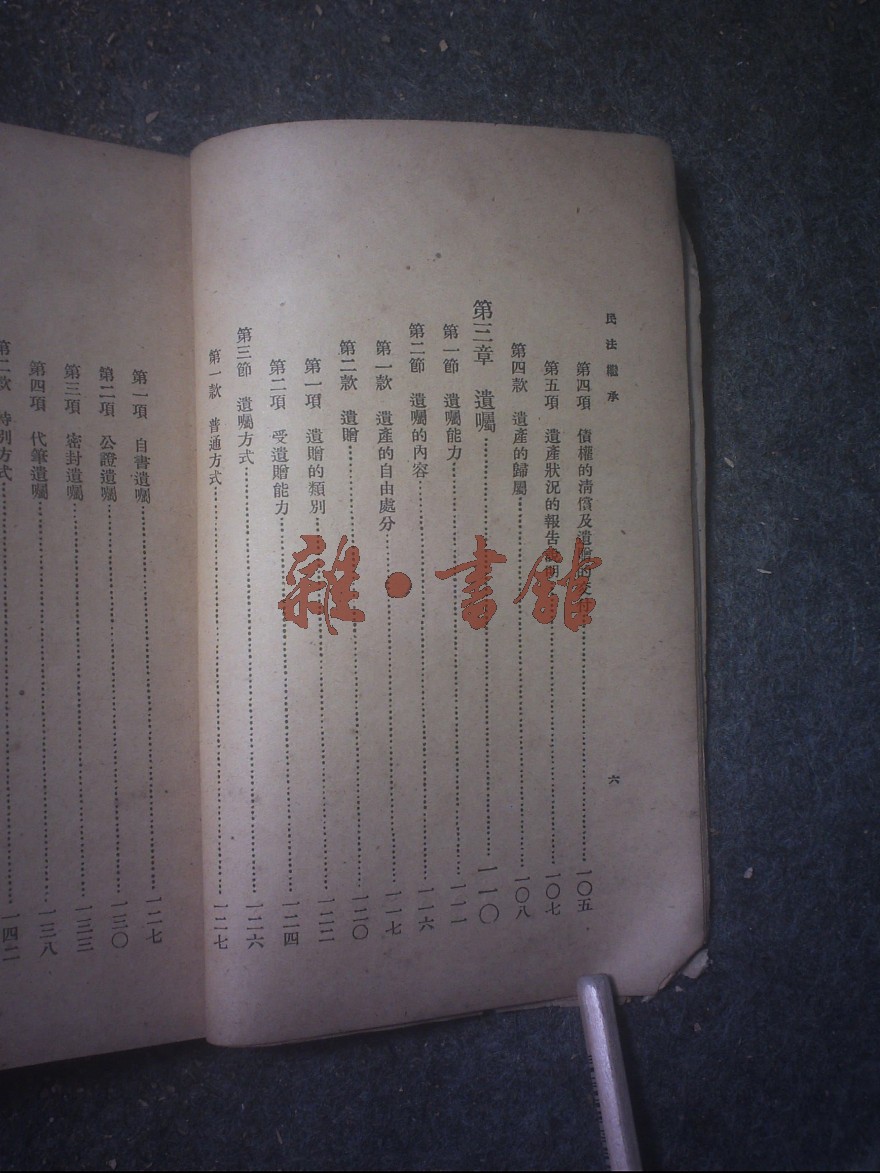 民法繼承
六
第四項 債權的清償及遺贈的交付……一〇五
第五項 遺產狀況的報告……一〇七
第四款 遺產的歸屬……一〇八
第三章 遺囑……一一〇
第一節 遺囑能力……一一一
第二節 遺囑的內容……一一六
第一款 遺產的自由處分……一一七
第二款 遺贈……一二〇
第一項 遺贈的類別……一二二
第二項 受遺贈能力……一二四
第三節 遺囑方式……一二六
第一款 普通方式……一二七
第一項 自書遺囑……一二七
第二項 公證遺囑……一三〇
第三項 密封遺囑……一三三
第四項 代筆遺囑……一三八
第二款 特別方式……一四二
雜·書館